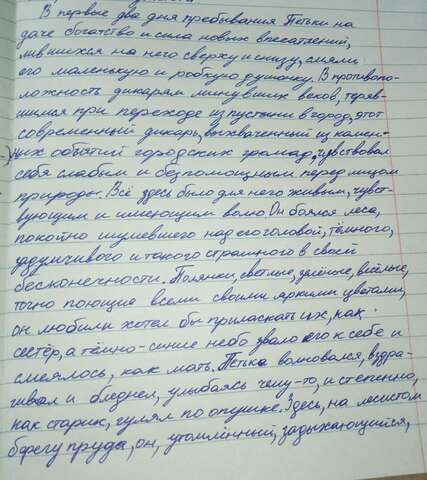 В первые два дня пребывания Петьки на
даче богатство и сила новых впечатлений,
лившихся на него сверху и снизу, смяли
его маленькую и робкую душонку. В противопо-
ложность дикарям минувших веков, теряв-
шимся при переходе из пустыни в город, этот
современный дикарь, выхваченный из камен-
ных объятий городских громад, чувствовал
себя слабым и беспомощным перед лицом
природы. Всё здесь было для него живым, чувст-
вующим и имеющим волю. Он боялся леса,
покойно шумевшего над его головой, тёмного,
задумчивого и такого страшного в своей
бесконечности. Полянки, светлые, зелёные, весёлые,
точно поющие всеми своими яркими цветами,
он любил и хотел бы приласкать их, как
сестёр, а тёмно-синие небо звало его к себе и
смеялось, как мать. Петька волновался, вздра-
гивал и бледнел, улыбаясь чему-то, и степенно,
как старик, гулял по опушке. Здесь, на лесистом
берегу пруда, он, утомлённый, задыхающийся,